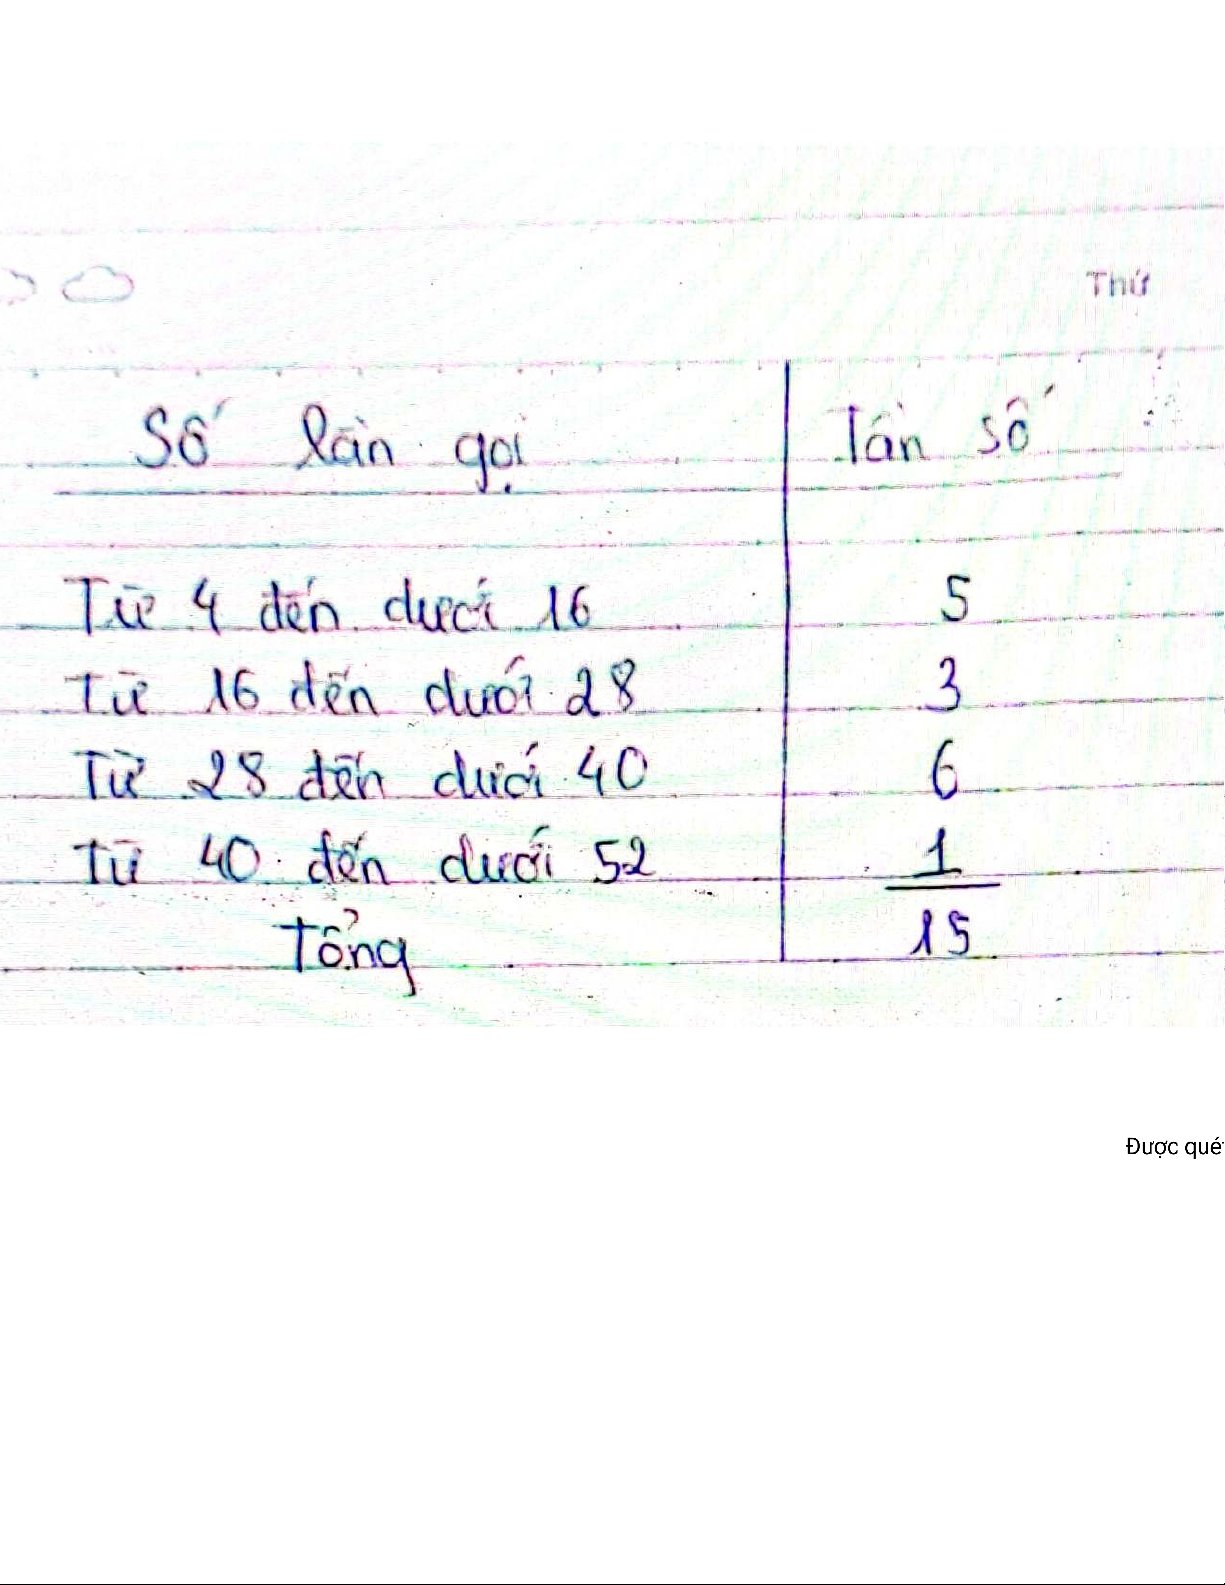 Thứ
Số lần gọi Tần số
Từ 4 đến dưới 16 5
Từ 16 đến dưới 28 3
Từ 28 đến dưới 40 6
Từ 40 đến dưới 52 1
Tổng 15
Được qué